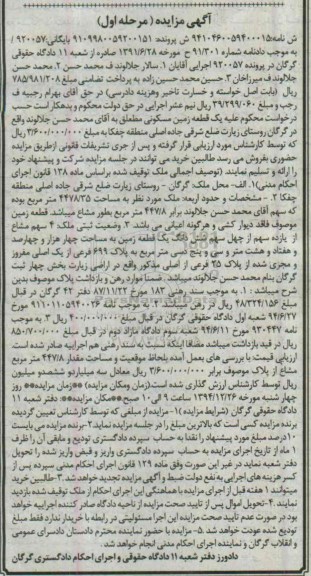 آگهی مزایده (مرحله اول)
ش نامه: ۹۴۱۰۴۶۰۰۵۹۴۰۰۰۱۵ ش پرونده: ۹۱۰۹۹۸۰۰۵۹۲۰۰۱۵۱ بایگانی: ۹۲۰۰۵۷
به موجب دادنامه شماره ۹۱/۳۰۱ ح مورخه ۱۳۹۱/۶/۲۸ صادره از شعبه ۱۱ دادگاه حقوقی
گرگان در پرونده ۹۲۰۰۵۷ اجرایی آقایان ۱. سالار جلالوند ف محمد حسن ۲. محمد حسن
جلالوند ف میرزاخان ۳. حسین محمد حسین زاده به پرداخت تضامنی مبلغ ۷۸۵/۹۸۱/۲۰۸
ریال (بابت اصل خواسته و خسارت تاخیر وهزینه دادرسی) در حق آقای بهرام رجبیه ف
رجب و مبلغ ۳۹/۲۹۹/۰۶۰ ریال نیم عشر اجرایی در حق دولت محکوم و بدهکار است حسب
درخواست محکوم علیه یک قطعه زمین مسکونی متعلق به آقای محمد حسن جلالوند واقع
در گرگان روستای زیارت ضلع شرقی جاده اصلی منطقه چفکا به مبلغ ۳/۶۰۰/۰۰۰/۰۰۰ ریال
که توسط کارشناس مورد ارزیابی قرار گرفته و پس از جری تشریفات قانونی ازطریق مزایده
حضوری بفروش می رسد طالبین خرید می توانند در جلسه مزایده شرکت و پیشنهاد خود
را ارائه و تسلیم نمایند. (توصیف اجمالی ملک توقیف شده براساس ماده ۱۳۸ قانون اجرای
احکام مدنی) ۱. الف- محل ملک: گرگان - روستای زیارت ضلع شرقی جاده اصلی منطقه
چفکا ۲. - مشخصات و حدود اربعه: ملک مورد نظر به مساحت ۴۴۷۸/۳۵ متر مربع بوده
که سهم آقای محمد حسن جلالوند برابر ۴۴۷/۸ متر مربع بطور مشاع میباشد. قطعه زمین
موصوف فاقد دیوار کشی و هرگونه اعیانی می باشد ۳. وضعیت ثبتی ملک: ۴ سهم مشاع
از یازده سهم از چهل سهم شش دانگ یک قطعه زمین به مساحت چهار هزار و چهارصد
و هفتاد و هشت متر و سی و پنج دسی متر مربع به پلاک ۶۹۹ فرعی از یک اصلی مفروز
و مجزی شده از پلاک ۲۵ فرعی از اصلی مذکور واقع در اراضی زیارت بخش چهار ثبت
گرگان بنام محمد حسن جلالوند میباشد. ضمنا موارد رهن و بازداشت پلاک موصوف بدین
شرح میباشد: ۱. به موجب سند رهنی ۱۸۳ مورخ ۸۷/۱۱/۲۳ دفتر ۴۲ گرگان در قبال
مبلغ ۴۸۳۲۴/۱۵۶ ریال در رهن میباشد
۹۴/۶/۲۷ شعبه اول دادگاه حقوقی گرگان در قبال مبلغ ۴۰۰/۰۰۰/۰۰۰ ریال ۳. به موجب
نامه ۹۳۰۴۴۷ مورخ ۹۴/۶/۱۱ شعبه سوم دادگاه مازاد دوم در قبال مبلغ ۸۵۰/۷۰۰/۰۰۰
ریال در قید بازداشت میباشد مضافا اینکه نسبت به سند رهنی هم اجراییه صادر شده است.
ارزیابی قیمت: با بررسی های بعمل آمده بلحاظ موقعیت و مساحت مقدار ۴۴۷/۸ متر مربع
مشاع از پلاک موصوف برابر ۳/۶۰۰/۰۰۰/۰۰۰ ریال معادل سه میلیاردو ششصدو میلیون
ریال توسط کارشناس ارزش گذاری شده است(زمان ومکان مزایده) **زمان مزایده** روز
چهار شنبه مورخه ۱۳۹۴/۱۲/۲۶ ساعت ۹ الی ۱۰ صبح**مکان مزایده**: دفتر شعبه ۱۱
دادگاه حقوقی گرگان (شرایط مزایده) ۱-مزایده از مبلغی که توسط کارشناس تعیین گردیده
برنده مزایده کسی است که بالاترین مبلغ را در جلسه مزایده نماید ۲-برنده مزایده می بایست
۱۰درصد مبلغ مورد پیشنهاد را نقدا به حساب سپرده دادگستری تودیع و مابقی آن را ظرف
۱ ماه از تاریخ اجرای مزایده به حساب سپرده دادگستری واریز و فیش واریز شده را تحویل
دفتر شعبه نماید در غیر این صورت وفق ماده ۱۲۹ قانون اجرای احکام مدنی سپرده پس از
کسر هزینه های اجرایی به نفع دولت ضبط و آگهی مزایده تجدید خواهد شد. ۳-طالبین خرید
میتوانند ۱ هفته قبل از اجرای مزایده با هماهنگی این اجرای احکام از ملک توقیف شده بازدید
نمایند. ۴-تحویل اموال پس از تایید صحت مزایده از ناحیه دادگاه صادر کننده اجراییه خواهد
بود در صورت عدم تایید صحت مزایده این اجرا مسئولیتی در رابطه با خریدار ندارد فقط مبلغ
تودیع شده عودت خواهد شد. ۵-مزایده با حضور نماینده محترم دادستان دادسرای عمومی
و انقلاب گرگان و نماینده اجرای احکام مدنی انجام خواهد شد.
دادورز دفتر شعبه ۱۱ دادگاه حقوقی و اجرای احکام دادگستری گرگان